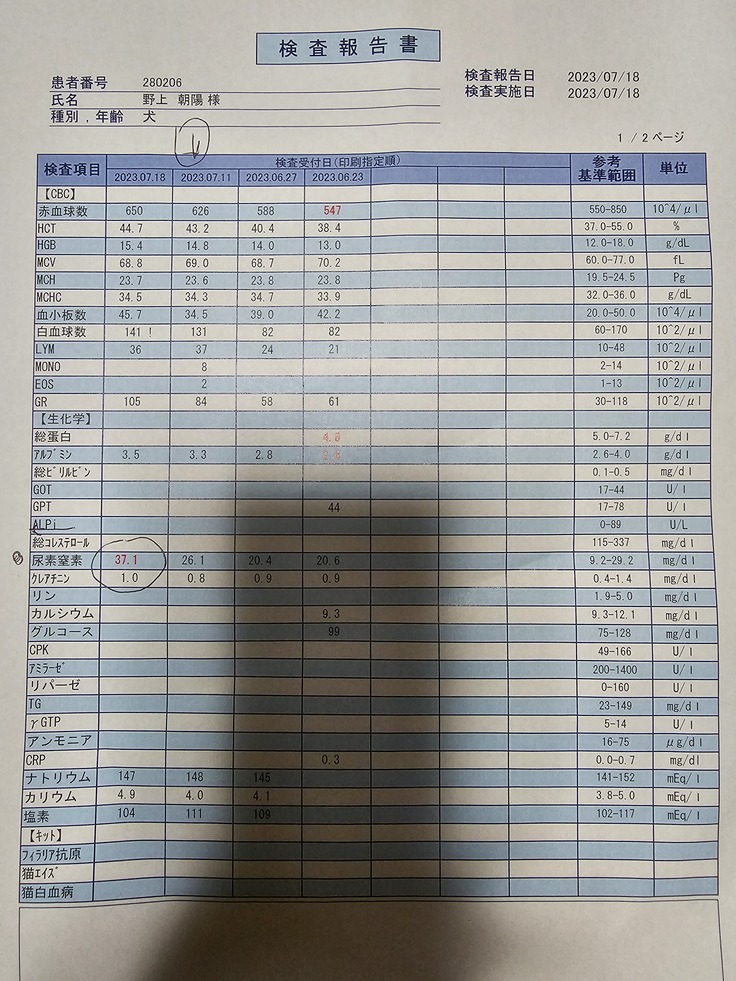 検査報告書
患者番号 280206
氏名 野上 朝陽 様
種別，年齢 犬
検査報告日 2023/07/18
検査実施日 2023/07/18
1 / 2 ページ
検査項目 検査受付日(印刷指定順) 参考基準範囲 単位
2023.07.18 2023.07.11 2023.06.27 2023.06.23
【CBC】
赤血球数 650 626 588 547 550-850 10^4/μl
HCT 44.7 43.2 40.4 38.4 37.0-55.0 %
HGB 15.4 14.8 14.0 13.0 12.0-18.0 g/dL
MCV 68.8 69.0 68.7 70.2 60.0-77.0 fL
MCH 23.7 23.6 23.8 23.8 19.5-24.5 Pg
MCHC 34.5 34.3 34.7 33.9 32.0-36.0 g/dL
血小板数 45.7 34.5 39.0 42.2 20.0-50.0 10^4/μl
白血球数 141 ! 131 82 82 60-170 10^2/μl
LYM 36 37 24 21 10-48 10^2/μl
MONO 8 2-14 10^2/μl
EOS 2 1-13 10^2/μl
GR 105 84 58 61 30-118 10^2/μl
【生化学】
総蛋白 5.0-7.2 g/dl
ｱﾙﾌﾞﾐﾝ 3.5 3.3 2.8 2.6-4.0 g/dl
総ﾋﾞﾘﾙﾋﾞﾝ 0.1-0.5 mg/dl
GOT 17-44 U/l
GPT 44 17-78 U/l
ALPi 0-89 U/L
総ｺﾚｽﾃﾛｰﾙ 115-337 mg/dl
尿素窒素 37.1 26.1 20.4 20.6 9.2-29.2 mg/dl
ｸﾚｱﾁﾆﾝ 1.0 0.8 0.9 0.9 0.4-1.4 mg/dl
リン 1.9-5.0 mg/dl
カルシウム 9.3 9.3-12.1 mg/dl
グルコース 99 75-128 mg/dl
CPK 49-166 U/l
ｱﾐﾗｰｾﾞ 200-1400 U/l
リパーゼ 0-160 U/l
TG 23-149 mg/dl
γGTP 5-14 U/l
アンモニア 16-75 μg/dl
CRP 0.3 0.0-0.7 mg/dl
ナトリウム 147 148 145 141-152 mEq/l
カリウム 4.9 4.0 4.1 3.8-5.0 mEq/l
塩素 104 111 109 102-117 mEq/l
【ｷｯﾄ】
ﾌｨﾗﾘｱ抗原
猫ｴｲｽﾞ
猫白血病